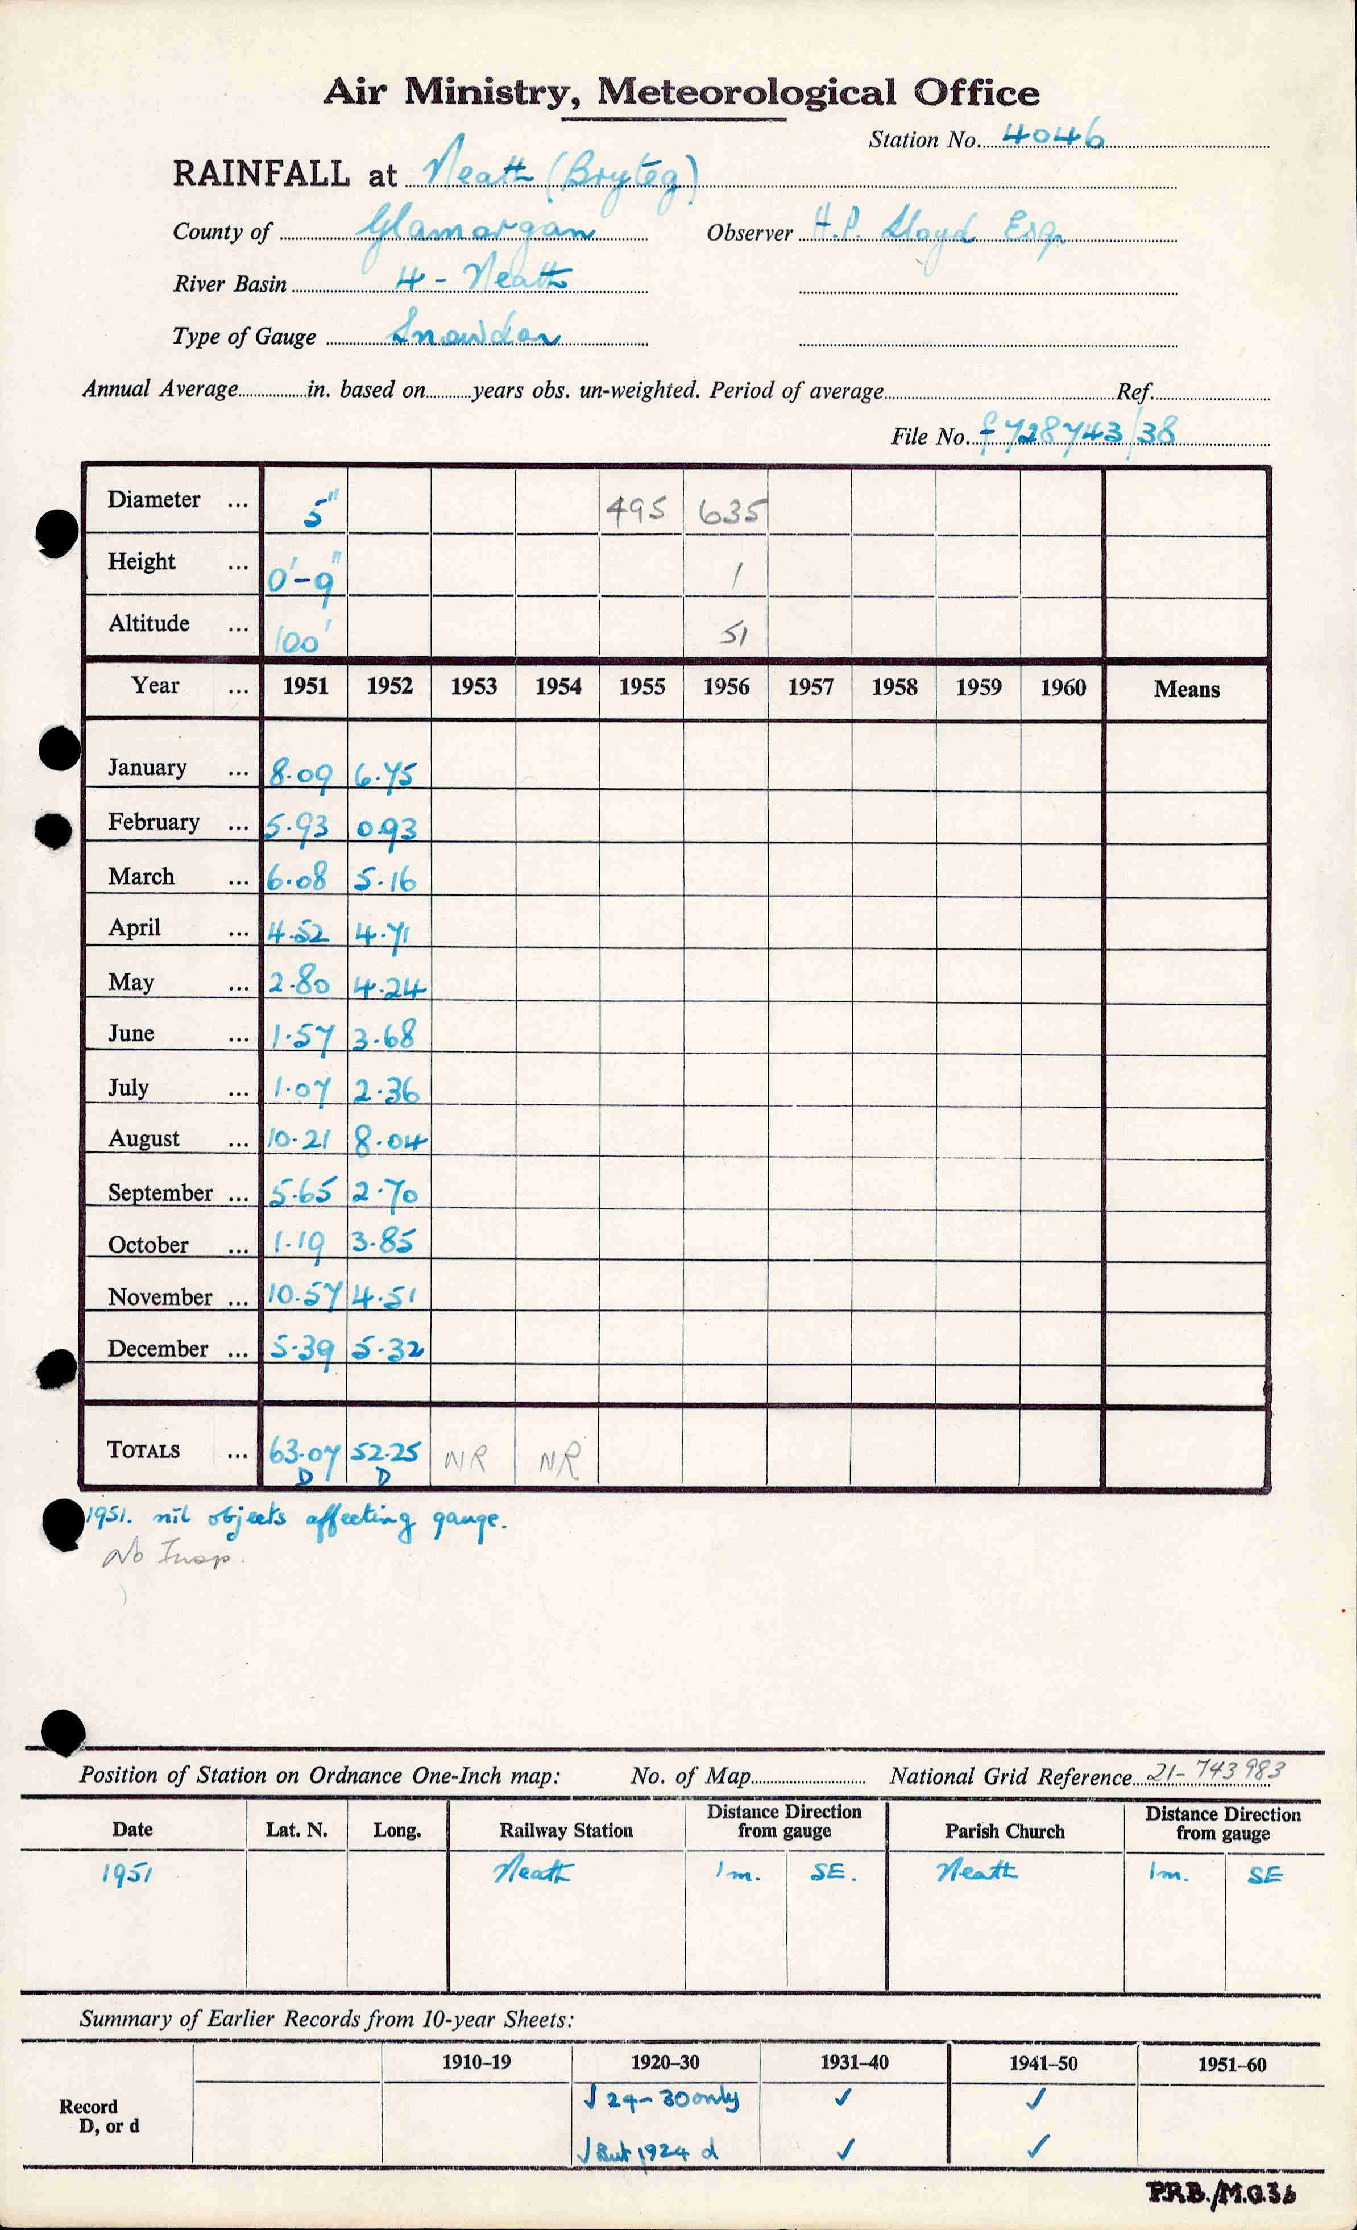 Air Ministry, Meteorological Office
Station No. 4046
RAINFALL at Neath (Bryteg)
County of Glamorgan Observer H.P. Lloyd Esq.
River Basin 4 - Neath
Type of Gauge Snowdon
Annual Average in. based on years obs. un-weighted. Period of average Ref.
File No. 728743/38
Diameter ... 5" 495 635
Height ... 0'-9" 1
Altitude ... 100' 51
Year ... 1951 1952 1953 1954 1955 1956 1957 1958 1959 1960 Means
January ... 8.09 6.75
February ... 5.93 0.93
March ... 6.08 5.16
April ... 4.52 4.71
May ... 2.80 4.24
June ... 1.57 3.68
July ... 1.07 2.36
August ... 10.21 8.04
September ... 5.65 2.70
October ... 1.19 3.85
November ... 10.57 4.51
December ... 5.39 5.32
TOTALS ... 63.07 52.25 NR NR
D D
1951. nil objects affecting gauge.
No Insp.
Position of Station on Ordnance One-Inch map: No. of Map National Grid Reference 21- 743983
Date Lat. N. Long. Railway Station Distance Direction from gauge Parish Church Distance Direction from gauge
1951 Neath 1m. SE. Neath 1m. SE
Summary of Earlier Records from 10-year Sheets:
1910-19 1920-30 1931-40 1941-50 1951-60
Record ✓ 24-30 only ✓ ✓
D, or d ✓ But 1924 d ✓ ✓
P.R.B./M.O.36